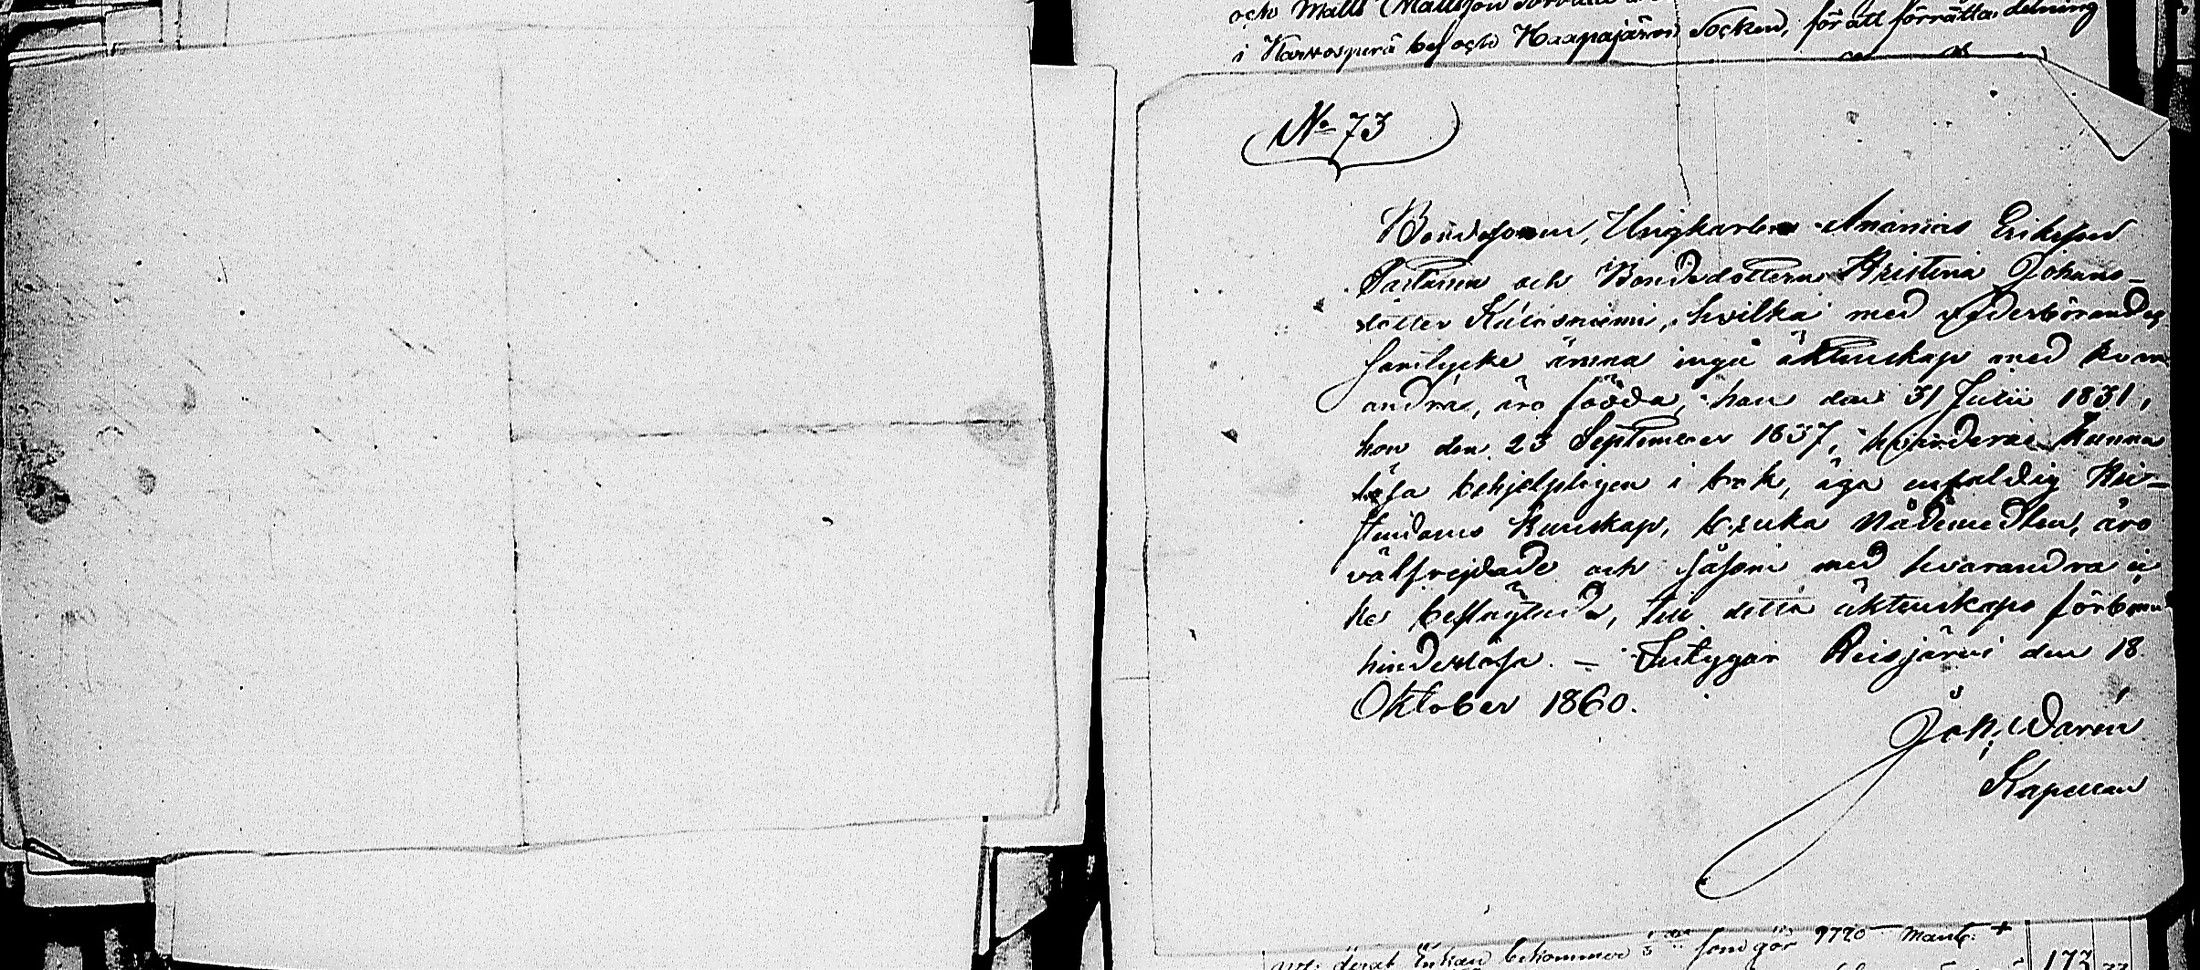 och Matts Mattsson
i Karvosperä by och Haapajärvi Socken, för att förrätta delning
No 73
Bondesonen, Ungkarlen Ananias Eriksson
och Bondedottren Kristina Johans-
dotter Kalasniemi, hvilka med vederbörandes
samtycke ämna ingå äktenskap med hvar
andra, äro födda, han den 31 Julii 1831,
hon den 23 September 1837, hvardera kunna
läsa behjelpligen i bok, äga enfaldig Kri-
stendoms kunskap, bruka Nådemedlen, äro
välfrejdade och såsom med hvarandra ic
ke beslägtade, till detta äktenskaps förbund
hinderslösa. – Intygar Reisjärvi den 18
Oktober 1860.
Joh.
Kapellan
deraf Enkan bekommer som gör 9720 mant. +
172